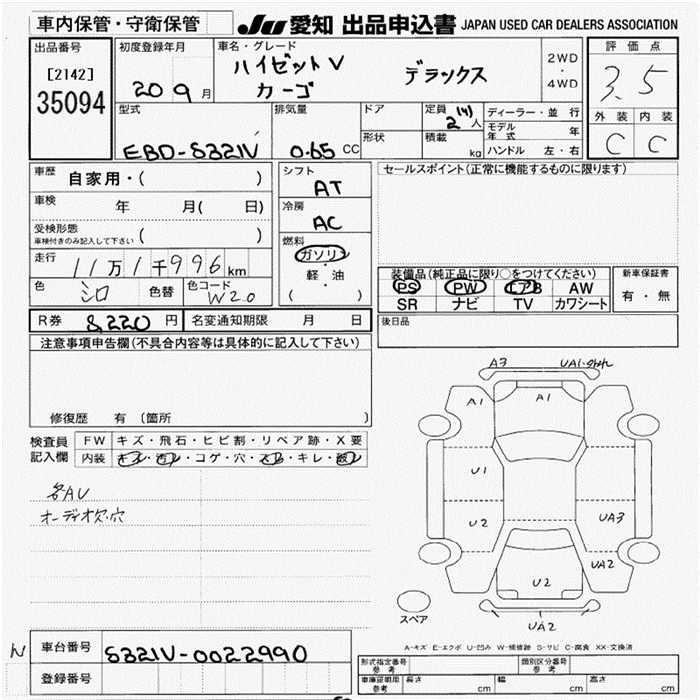 車内保管・守衛保管
JU 愛知 出品申込書 JAPAN USED CAR DEALERS ASSOCIATION
出品番号
[2142]
35094
初度登録年月
20 9 月
車名・グレード
ハイゼットV デラックス
カーゴ
2WD
・
4WD
評価点
3.5
外装 内装
C C
型式
EBD-S321V
排気量
0.65 CC
ドア
形状
定員
2(4)人
積載
kg
ディーラー・並行
モデル年式 年
ハンドル 左・右
車歴
自家用・( )
車検
年 月( 日)
受検形態
車検付きのみ記入して下さい ( )
走行
11万1千996km
色
シロ
色替
色コード
W20
シフト
AT
冷房
AC
燃料
ガソリン
軽・油
( )
セールスポイント(正常に機能するものに限ります)
装備品(純正品に限り○をつけてください)
PS PW エアB AW
SR ナビ TV カワシート
新車保証書
有・無
後日品
R券 8,220 円
名変通知期限 月 日
注意事項申告欄(不具合内容等は具体的に記入して下さい)
修復歴 有 〔箇所 〕
検査員
記入欄
FW キズ・飛石・ヒビ割・リペア跡・X要
内装 キズ・汚れ・コゲ・穴・スレ・キレ・破れ
各AU
オーディオ欠・穴
A3
UA1・
A1
A1
U1
U2
UA3
UA2
U2
UA2
スペア
A-キズ E-エクボ U-凹み W-補修跡 S-サビ C-腐食 XX-交換済
車台番号 S321V-0022990
登録番号
形式指定番号
参考
類別区分番号
参考
車庫証明用
参考
長さ cm
幅 cm
高さ cm